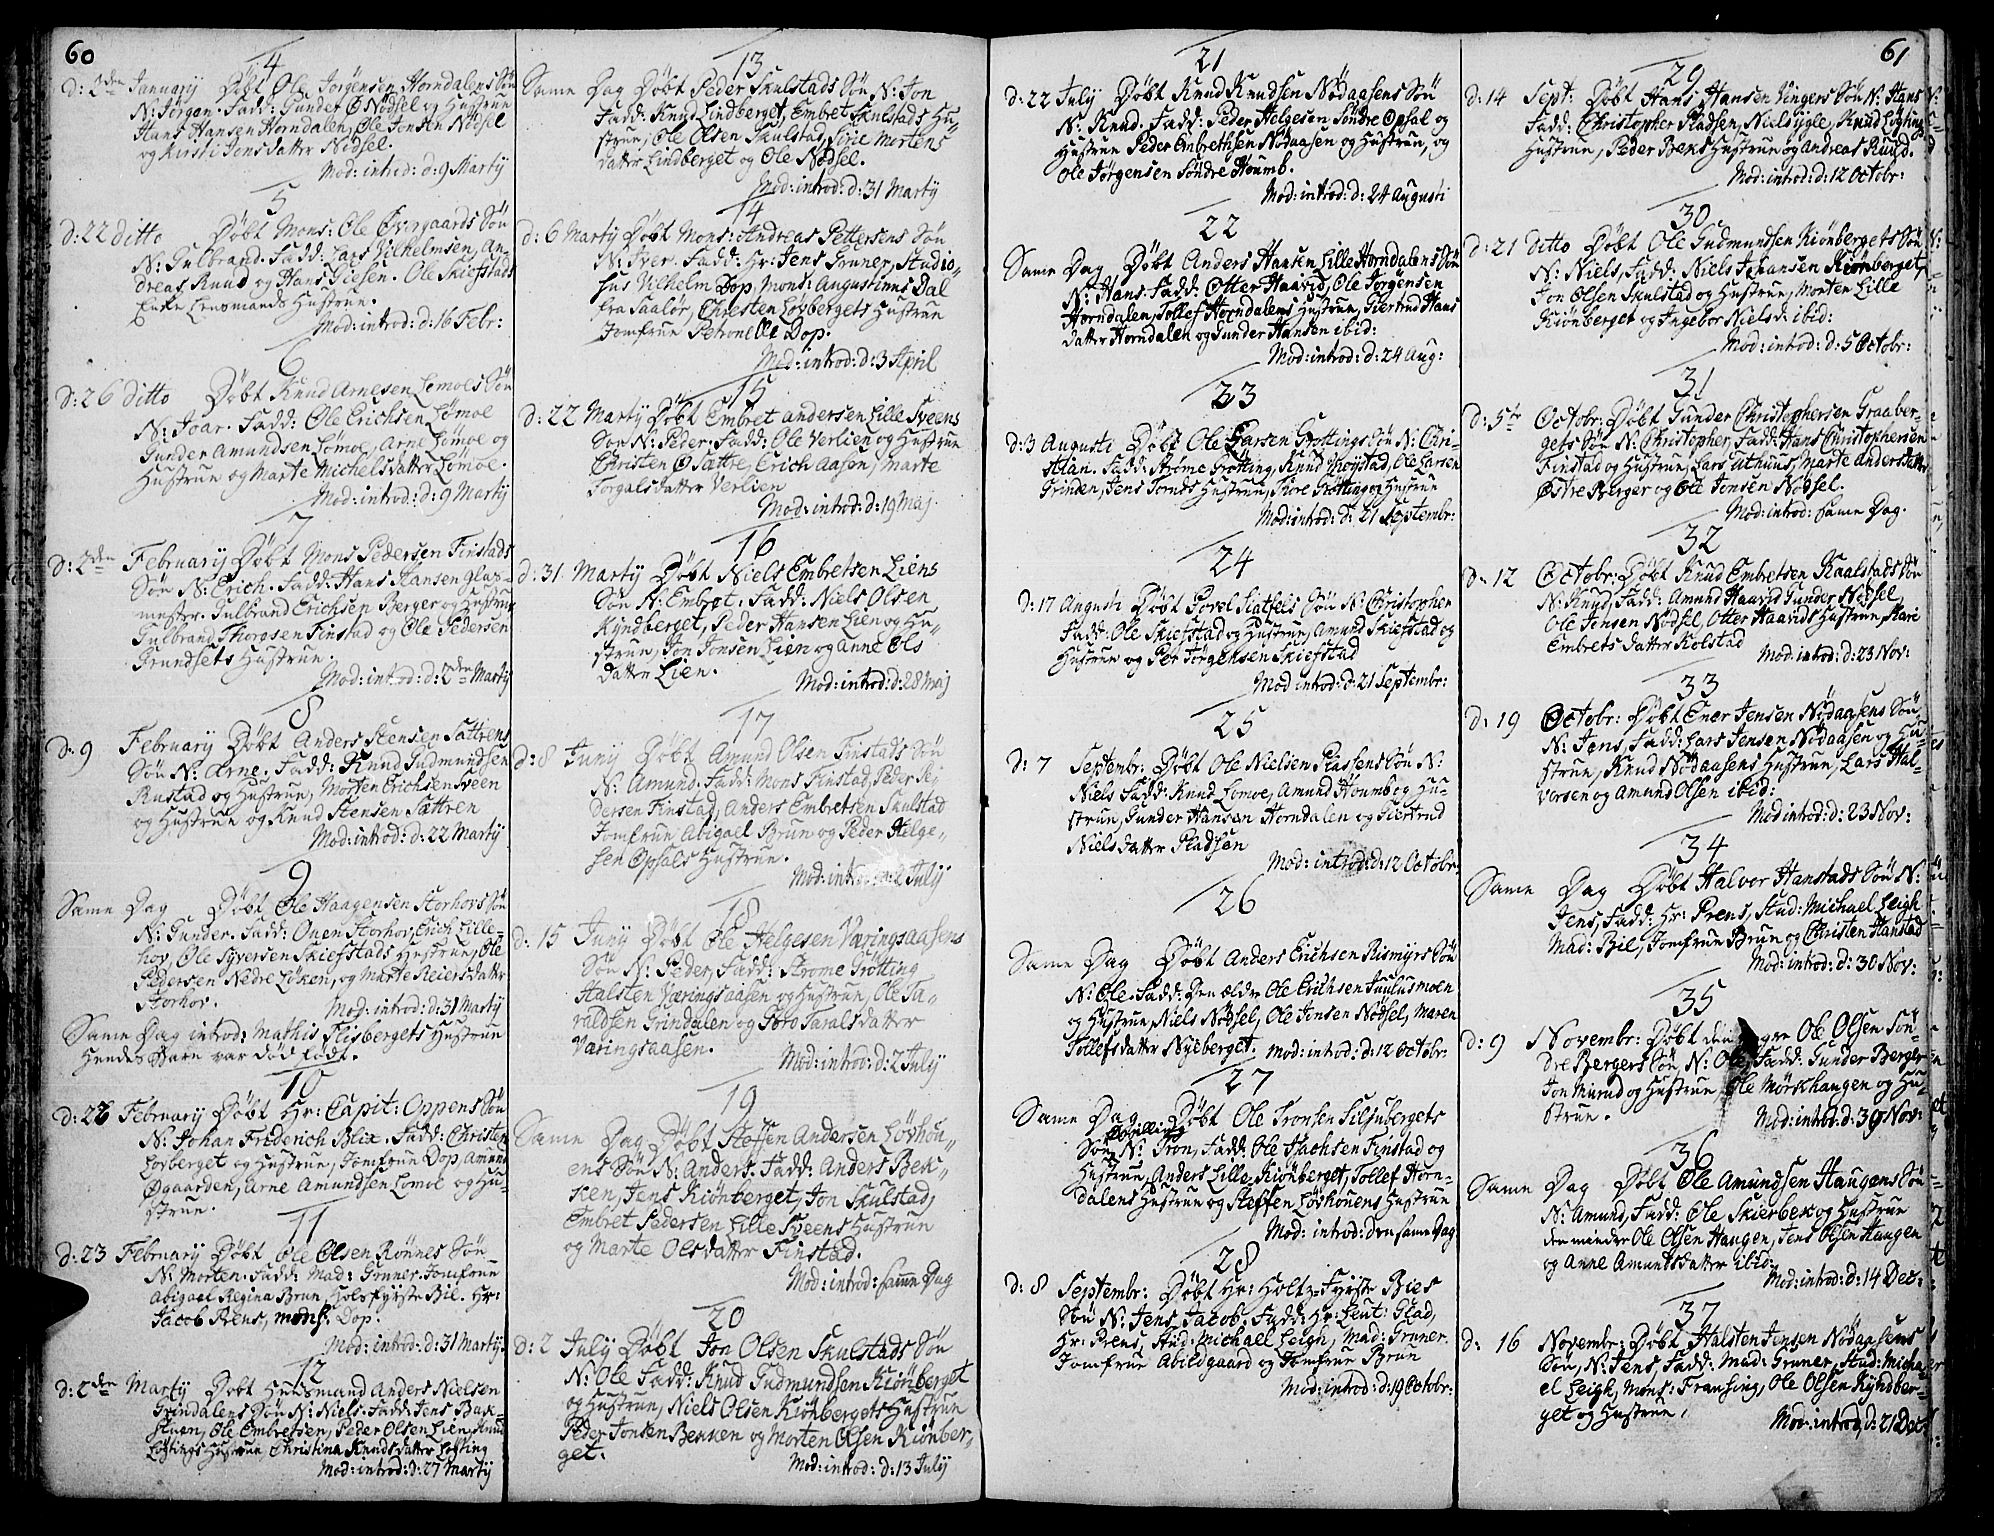 60
4
d: 2den January Døbt Ole Jørgensen Horndalens Søn
N: Jørgen. Fadd: Gunder Ø Nødsel og Hustrue
Hans Hansen Horndalen, Ole Jonsen Nødsel
og Kirsti Jensdatter Nødsel.
Mod: introd: d: 9 Marty
5
d: 22 ditto Døbt Mons: Ole Øvergaards Søn
N: Gulbrand. Fadd: Lars Vilhelmsen, An
dreas Ruud og Hans Giesen. Ole Skiefstads
Enke Lensmands Hustrue.
Mod: introd: d: 16 Febr:
6
d: 26 ditto Døbt Knud Arnesen Lemoes Søn
N: Joar. Fadd: Ole Erichsen Lømoe
Gunder Amundsen Lømoe, Arne Lømoe og
Hustrue og Marte Michelsdatter Lømoe.
Mod: introd: d: 9 Marty
7
d: 2den February Døbt Mons Pedersen Finstads
Søn N: Erich. Fadd: Hans Hansen glas-
mester. Gulbrand Erichsen Berger og Hustrue
Gulbrand Thorgsen Finstad og Ole Pedersen
Grundsets Hustrue.
Mod: introd: d: 2den Marty
8
d: 9 February Døbt Anders Stensen Sættrens
Søn N: Arne. Fadd: Knud Gudmundsen
Rustad og Hustrue, Morten Erichsen Sveen
og Hustrue og Knud Stensen Sættren
Mod: introd: d: 22 Marty
9
Same Dag Døbt Ole Haagensen Storhovs Søn
N: Gunder. Fadd: Onen Storhov, Erich Lille-
hov, Ole Syversen Skiefstads Hustrue, Ole
Pedersen Nedre Løken, og Marte Reiersdatter
Storhov.
Mod: introd: d: 31 Marty
Same Dag introd: Mathis Flisbergets Hustrue
Hendes Barn var død født.
10
d: 26 February Døbt Hr: Capit: Oppens Søn
N: Johan Friderich Blix. Fadd: Christen
Lovberget og Hustrue, Jomfrue Dop, Amund
Øgaarden, Arne Amundsen Lomoe og Hu-
strue.
11
d: 23 February Døbt Ole Olsen Rønnes Søn
N: Morten. Fadd: Mad: Gruner. Jomfrue
Abigael Regina Brun, Holofyrste Bil. Hr:
Jacob Prens, mons: Dop.
Mod: introd: d: 31 Marty.
12
d: 2den Marty Døbt Huusmand Anders Nielsen
Grindalens Søn N: Niels. Fadd: Jens Bak-
stuen, Ole Embretsen, Peder Olsen Lien, Knud
Løftings Hustrue, Christina Knudsdatter Løfting
Mod: introd: d: 27 Marty
13
Same Dag Døbt Peder Skulstads Søn N: Jon
Fadd: Knud Lindberget, Embret Skulstads Hu-
strue, Ole Olsen Skulstad, Sirie Mortens
datter Lindberget og Ole Nødsel.
Mod: introd: d: 31 Marty
14
d: 6 Marty Døbt Mons: Andreas Pettersens Søn
N: Iver. Fadd: Hr: Jens Gruner, Studio-
sus Vilhelm Dop, Mons: Augustinus Dal
fra Saalør, Christen Løvbergets Hustrue
Jomfrue Petronelle Dop.
Mod: introd: d: 3 April
15
d: 22 Marty Døbt Embret andersen Lille Sveens
Søn N: Peder. Fadd: Ole Verlien og Hustrue
Christen Ø Sættre, Erich Aasen, Marte
Torgalsdatter Verlien
Mod: introd: d: 19 Maj
16
d: 31 Marty Døbt Niels Embretsen Liens
Søn N: Embret. Fadd: Niels Olsen
Kyndberget, Peder Hansen Lien og Hu-
strue, Jon Jonsen Lien og Anne Ols
Datter Lien.
Mod: introd: d: 28 Maj
17
d: 8 Juny Døbt Amund Olsen Finstads Søn
N: Amund. Fadd: Mons Finstad, Peder Pe-
dersen Finstad, Anders Embretsen Skulstad
Jomfrue Abigael Brun og Peder Helge-
sen Opsals Hustrue.
Mod: introd: July
18
d: 15 Juny Døbt Ole Helgesen Væringsaasens
Søn N: Peder, Fadd: Strøme Grøtting
Halsten Væringsaasen og Hustrue, Ole Ta-
raldsen Grindalen og Goro Taralsdatter
Væringsaasen.
Mod: introd: d: 2 July
19
Same Dag Døbt Steffen Andersen Løvhou-
ens Søn N: Anders. Fadd: Anders Bek-
ken, Jens Kiønberget, Jon Skulstad,
Embret Pedersen Lille Sveens Hustrue
og Marte Olsdatter Finstad.
Mod: introd: same Dag
20
d: 2 July Døbt Jon Olsen Skulstads Søn
N: Ole Fadd: Knud Gudmundsen Kiønberget
og Hustrue, Niels Olsen Kiønbergets Hustrue
Peder Jonsen Bekken og Morten Olsen Kiønber-
get.
Mod: introd: d: 13 July
21
d: 22 July Døbt Knud Knudsen Nødaasens Søn
N: Knud. Fadd: Peder Helgesen Søndre Opsal og
Hustrue Peder Enbrethsen Nødaasen og Hustrue, og
Ole Jørgensen Søndre Houmb.
Mod: introd: d: 24 Augusti
22
Same Dag Døbt Anders Hansen Lille Horndalens Søn
N: Hans. Fadd: Otter Haavid, Ole Jørgensen
Horndalen, Tollef Horndalens Hustrue, Giertrud Hans
datter Horndalen og Gunder Hansen ibid:
Mod: introd: d: 24 Aug:
23
d: 3 Augusti Døbt Ole Larsen Grøttings Søn N: Chri-
stian. Fadd: Strøme Grøtting, Knud Thoystad, Ole Larsen
Grinden, Jens Tornds Hustrue, Thore Grøtting og Hustrue
Mod: introd: d: 21 Septembr:
24
d: 17 Augusti Døbt Porel Slatfels Søn N: Christopher
Fadd: Ole Skiefstad og Hustrue, Amund Skiefstad og
Hustrue og Per Jørgensen Skiefstad
Mod introd: d: 21 Septembr:
25
d: 7 Septembr: Døbt Ole Nielsen Plassens Søn N:
Niels Fadd: Knud Lomoe, Amund Houmb og Hu-
strue, Gunder Hansen Horndalen og Giertrud
Niels datter Pladsen
Mod: introd: d: 12 Octobr:
26
Same Dag Døbt Anders Erichsen Rismyrs Søn
N: Ole. Fadd: Den ældre Ole Erichsen Juulusmoen
og Hustrue, Niels Nødsel, Ole Jensen Nødsel, Maren
Tollefsdatter Nyeberget. Mod: introd: d: 12 Octobr:
27
Same Dag Døbt Ole Tronsen Siljubergets
Søn N: Tron, Fadd: Ole Isachsen Finstad og
Hustrue, Anders Lille Kiønberget, Tollef Horn-
dalens Hustrue og Steffen Løvhouens Hustrue
Mod: introd: den same Dag
28
d: 8 Septembr: Døbt Hr: Holtz-Fyrste Bies
Søn N: Jens Jacob. Fadd: Hr: Leut: Glad,
Hr: Prens, Stud: Michael Leigh, Mad: Gruner
Jomfrue Abildgaard og Jomfrue Brun
Mod: introd: d: 19 Octobr:
61
29
d: 14 Sept: Døbt Hans Hansen Vingers Søn N: Hans
Fadd: Christopher Pladsen, Niels Ygle, Knud Løftings
Hustrue, Peder Beks Hustrue og Andreas Ruud.
Mod: introd: d: 12 Octobr:
30
d: 21 ditto Døbt Ole Gudmundsen Kiønbergets Søn
N: Niels, Fadd: Niels Johansen Kiønberget,
Jon Olsen Skulstad og Hustrue, Morten Lille
Kiønberget og Ingebor Nielsd: ibid:
Mod: introd: d: 5 Octobr:
31
d: 5te Octobr: Døbt Gunder Christophersen Graaber-
gets Søn N: Christopher, Fadd: Hans Christophersen
Finstad og Hustrue, Lars Uthuus, Marte Andersdatter
Østre Berger og Ole Jonsen Nødsel.
Mod: introd: same Dag.
32
d: 12 Octobr: Døbt Knud Embretsen Kaalstads Søn
N: Knud, Fadd: Amund Haavid Gunder Nødsel,
Ole Jensen Nødsel, Otter Haavids Hustrue, Mari
Embrets datter Kolstad
Mod: introd: d: 23 Nov:
33
d: 19 Octobr: Døbt Ener Jensen Nødaasens Søn
N: Jens, Fadd: Lars Jensen Nødaasen og Hu-
strue, Knud Nødaasens Hustrue, Lars Hal-
vorsen og Amund Olsen ibid:
Mod introd: d: 23 Nov:
34
Same Dag Døbt Halvor Hanstads Søn N:
Jens, Fadd: Hr: Prens, Stud: Michael Leigh
Mad: Bil, Jomfrue Brun og Christen Hanstad
Mod: introd: d: 30 Nov:
35
d: 9 Novembr: Døbt den Ole Olsen Søn-
dre Bergers Søn N: Ole, Fadd: Gunder Berger
Jon Murud og Hustrue, Ole Mørkhaugen og Hu-
strue.
Mod: introd: d: 30 Nov:
36
Same Dag Døbt Ole Amundsen Haugens Søn
N: Amund, Fadd: Ole Skierbek og Hustrue
den mindre Ole Olsen Haugen, Jens Olsen Haugen
og Anne Amundsdatter ibid:
Mod: introd: d: 14 Dec:
37
d: 16 Novembr: Døbt Halsten Jensen Nødaasens
Søn, N: Jens, Fadd: Mad: Gruner, Stud: Micha-
el Leigh, Mons: Fransing, Ole Olsen Kyndber-
get og Hustrue.
Mod: introd: d: 21 Dec